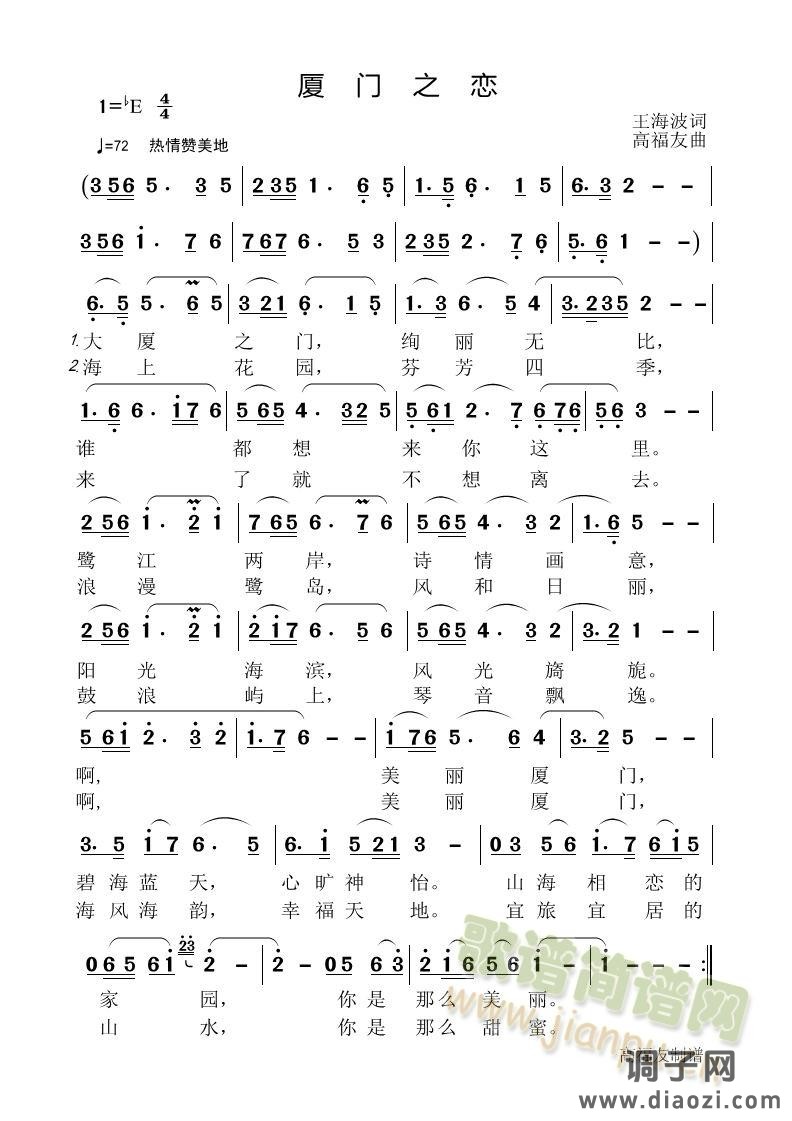 厦门之恋
1=♭E 4/4
王海波词
♩=72 热情赞美地
高福友曲
(3 5 6 5 · 3 5 | 2 3 5 1 · 6 5 | 1 · 5 6 · 1 5 | 6 · 3 2 - - |
3 5 6 1 · 7 6 | 7 6 7 6 · 5 3 | 2 3 5 2 · 7 6 | 5 · 6 1 - - )
6 · 5 5 · 6 5 | 3 2 1 6 · 1 5 | 1 · 3 6 · 5 4 | 3 · 2 3 5 2 - - |
1. 大厦之门，绚丽无比，
2. 海上花园，芬芳四季，
1 · 6 6 · 1 7 6 | 5 6 5 4 · 3 2 5 | 5 6 1 2 · 7 6 7 6 | 5 6 3 - - |
谁都想来你这里。
来了就不想离去。
2 5 6 1 · 2 1 | 7 6 5 6 · 7 6 | 5 6 5 4 · 3 2 | 1 · 6 5 - - |
鹭江两岸，诗情画意，
浪漫鹭岛，风和日丽，
2 5 6 1 · 2 1 | 2 1 7 6 · 5 6 | 5 6 5 4 · 3 2 | 3 · 2 1 - - |
阳光海滨，风光旖旎。
鼓浪屿上，琴音飘逸。
5 6 1 2 · 2 3 | 1 · 7 6 - - | 1 7 6 5 · 6 4 | 3 · 2 5 - - |
啊，美丽厦门，
啊，美丽厦门，
3 · 5 1 7 6 · 5 | 6 · 1 5 2 1 3 - | 0 3 5 6 1 · 7 6 1 5 |
碧海蓝天，心旷神怡。山海相恋的
海风海韵，幸福天地。宜旅宜居的
0 6 5 6 1 2 3 2 - | 2 - 0 5 6 3 | 2 1 6 5 6 1 - | 1 - - - :||
家园，你是那么美丽。
山水，你是那么甜蜜。
歌谱简谱网
高福友制谱
调子网
www.diaozi.com